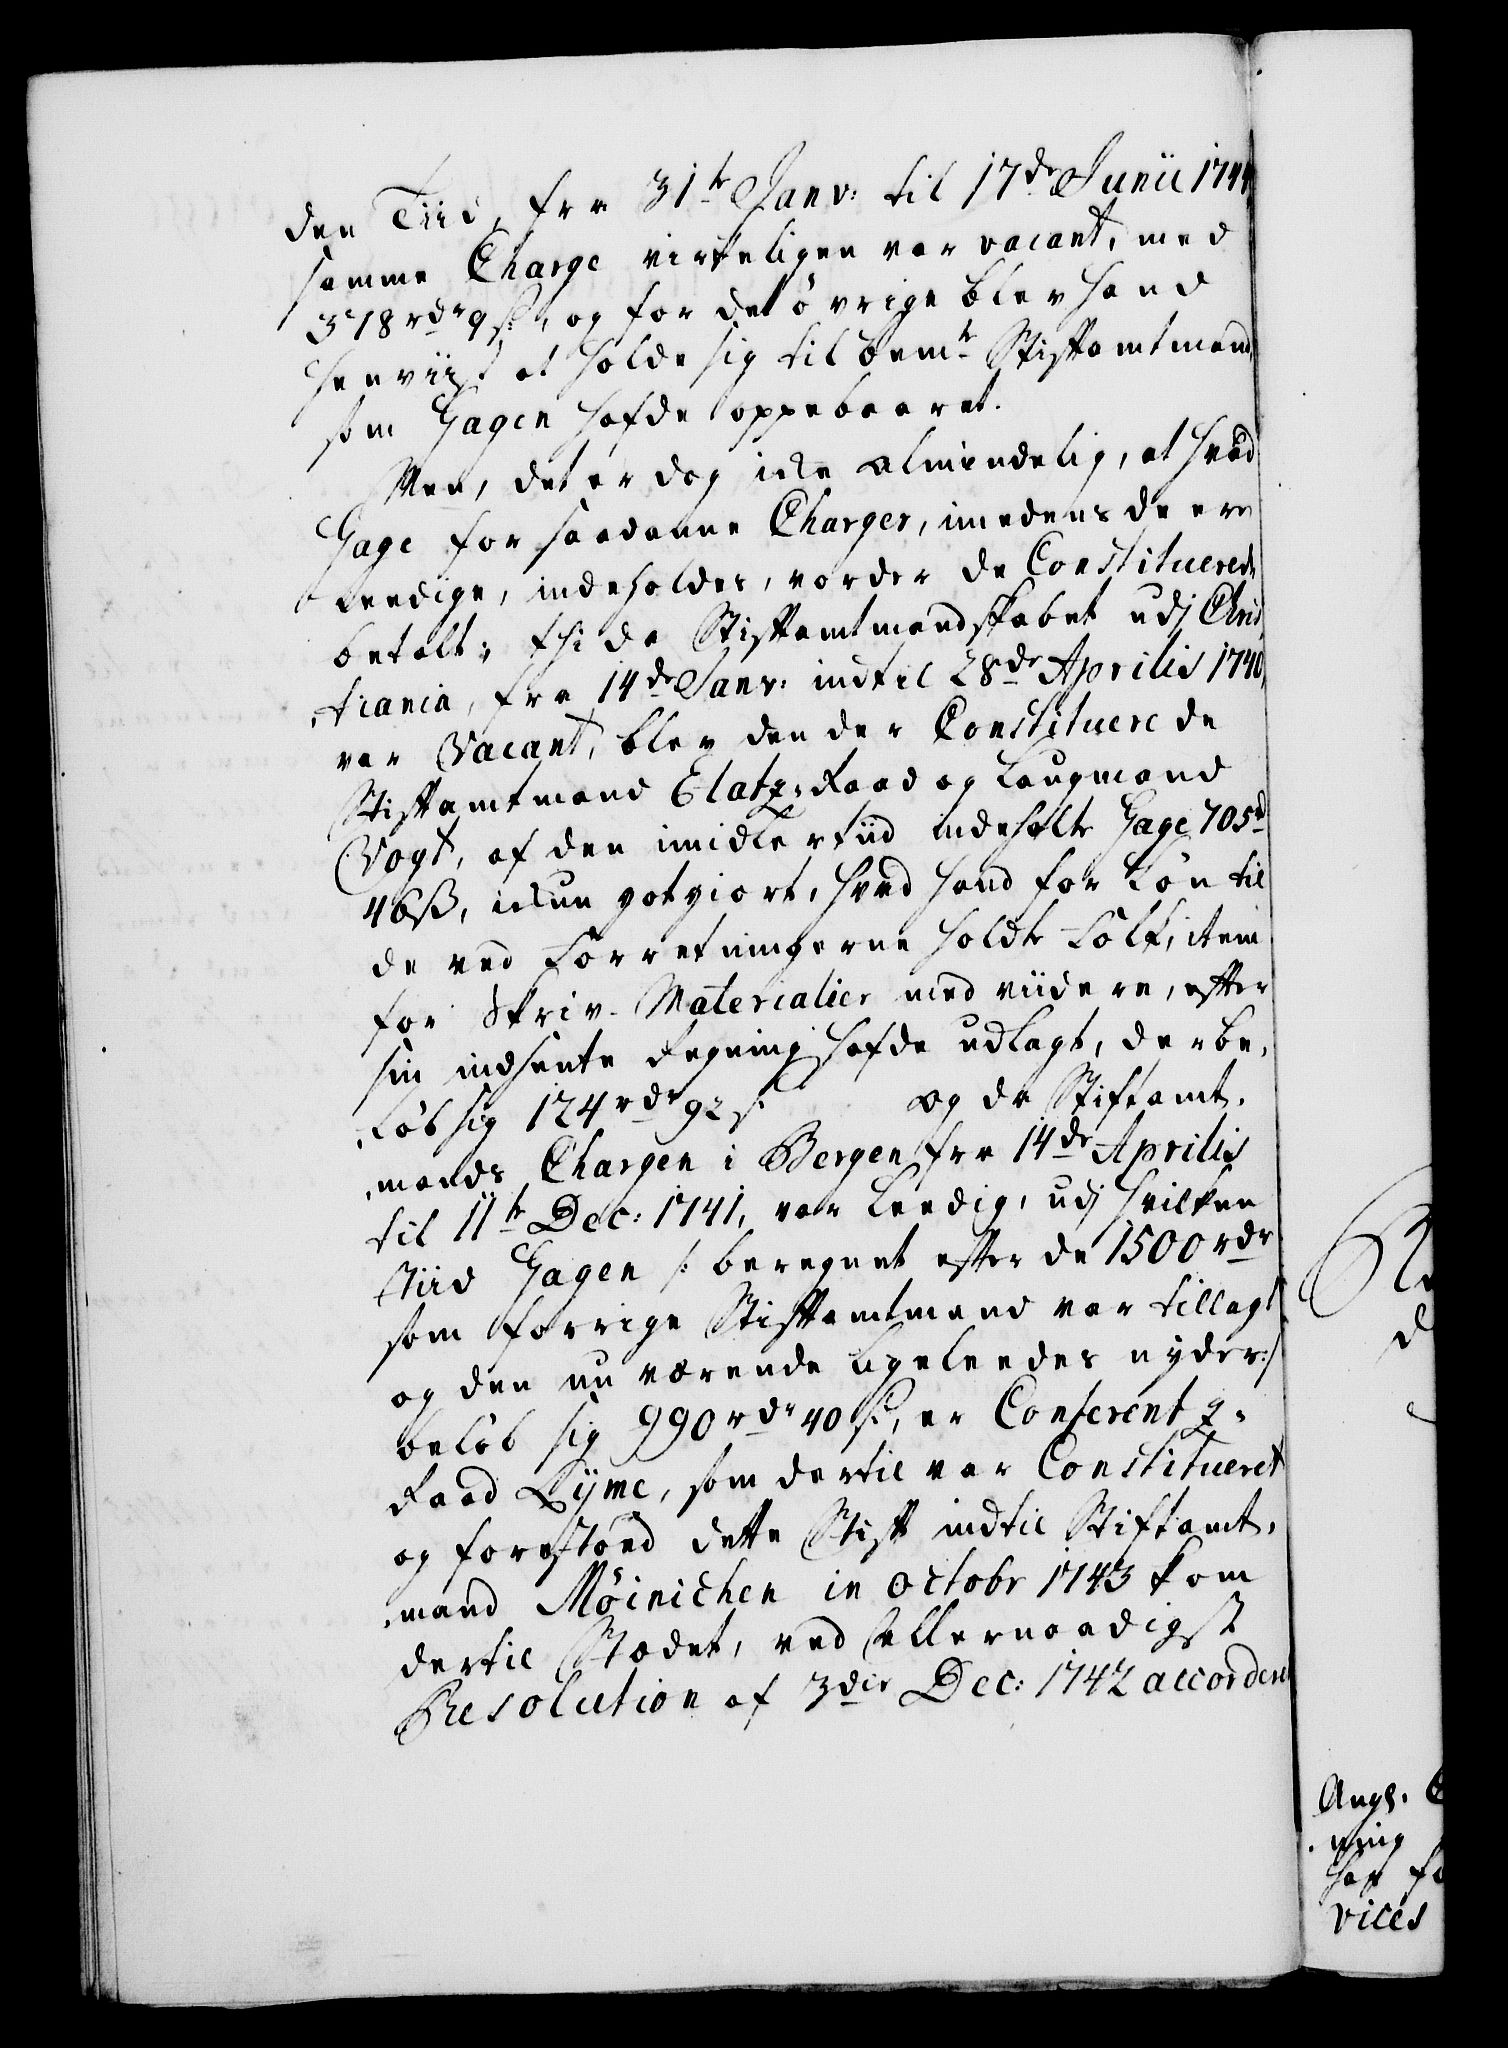 den Tiid, fra 31te Janv: til 17de Junii 1744
samme Charge virkeligen var vacant, med
318 rdr 9 s:, og for det øvrige blev hand
henviist at holde sig til bemte Stiftamtmand,
som Gagen hafde oppebaaret.
Men, det er dog icke almindelig, at hvad
Gage for saadanne Charger, imedens de ere
leedige, indeholdes, vorder de Constituerede
betalt; thi da Stiftamtmandskabet udj Chri-
stiania, fra 14de Janv: indtil 28de Aprilis 1740,
var Vacant, blev den der Constituerede
Stiftamtmand Etatz-Raad og Laugmand
Vogt, af den imidlertiid indeholte Gage 705 rd
46 ß, ickun gotgiort, hvad hand for Løn til
de ved Forretningerne holdte Folk, item
for Skriv-Materialier med viidere, efter
sin indsente Regning hafde udlagt, der be-
løb sig 124 rdr 92 s: og da Stiftamt-
mands Chargen i Bergen fra 14de Aprilis
til 11te Dec: 1741, var leedig, udj hvilken
Tiid Gagen /: beregnet efter de 1500 rdr
som forrige Stiftamtmand var tillagt
og den nu værende ligeleedes nyder :/
beløb sig 990 rdr 40 s:, er Conferentz-
Raad Lyme, som dertil var Constitueret
og forestoed dette Stift indtil Stiftamt-
mand Møinichen in octobr 1743 kom
dertil Stædet, ved Allernaadigst
Resolution af 3die Dec: 1742 accorderet
d
ning
vices